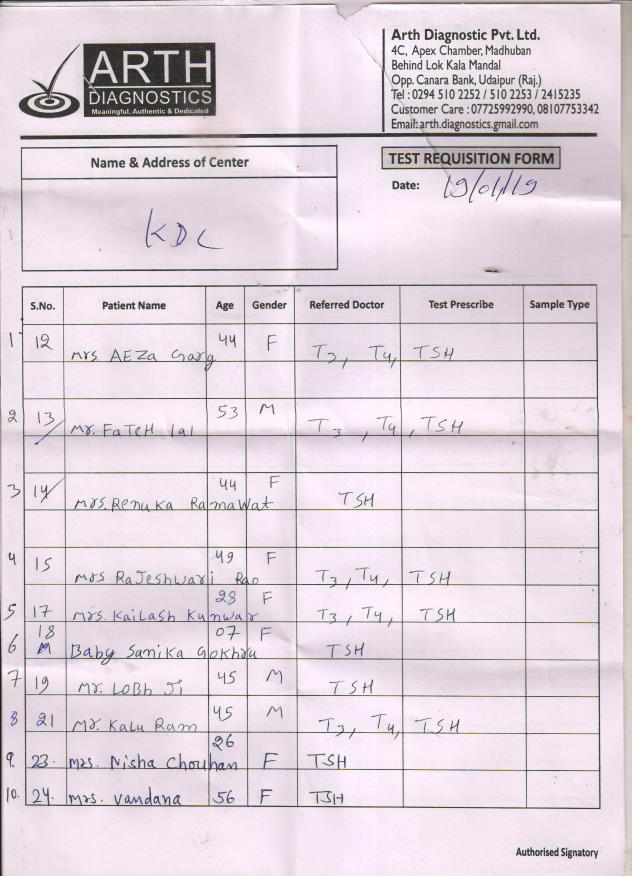 ARTH
DIAGNOSTICS
Meaningful, Authentic & Dedicated
Arth Diagnostic Pvt. Ltd.
4C, Apex Chamber, Madhuban
Behind Lok Kala Mandal
Opp. Canara Bank, Udaipur (Raj.)
Tel : 0294 510 2252 / 510 2253 / 2415235
Customer Care : 07725992990, 08107753342
Email: arth.diagnostics.gmail.com
Name & Address of Center
KDC
TEST REQUISITION FORM
Date: 19/01/19
S.No. Patient Name Age Gender Referred Doctor Test Prescribe Sample Type
1 12 Mrs. AEZa Garg 44 F T3, T4, TSH
2 13 Mr. FaTeH lal 53 M T3, T4, TSH
3 14 Mrs. Renuka RamaWat 44 F TSH
4 15 Mrs Rajeshwari Rao 49 F T3, T4, TSH
5 17 Mrs. Kailash Kunwar 28 F T3, T4, TSH
6 18 Baby Sanika Gokhru 07 F TSH
7 19 Mr. LOBh Ji 45 M TSH
8 21 Mr. Kalu Ram 45 M T3, T4, TSH
9. 23. Mrs. Nisha Chouhan 26 F TSH
10. 24. Mrs. Vandana 56 F TSH
Authorised Signatory